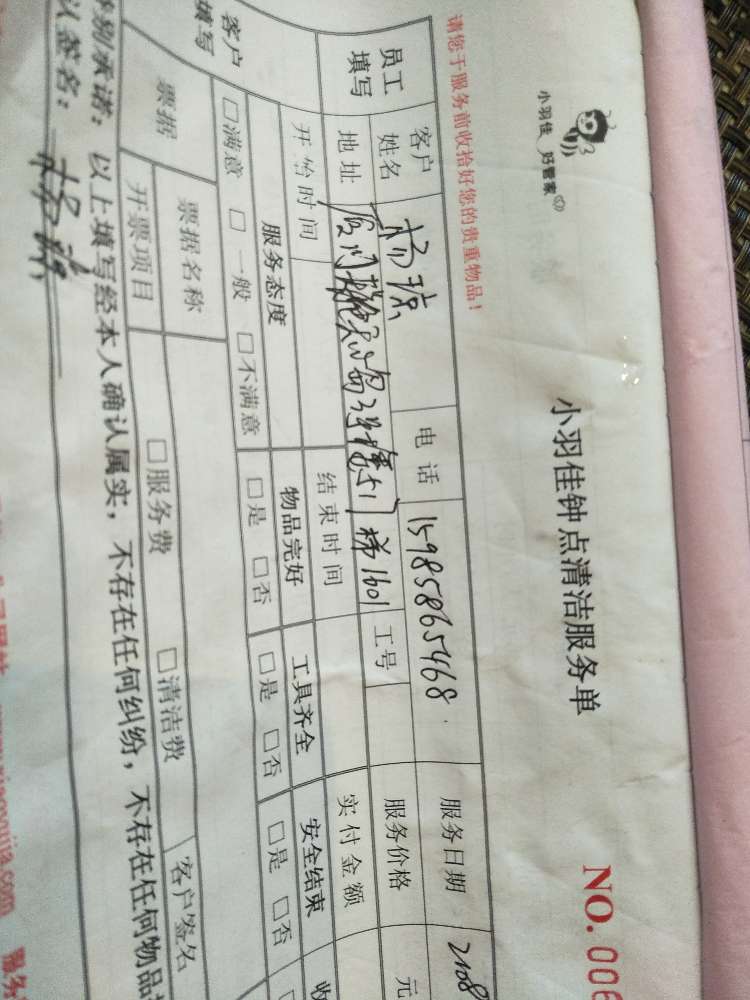 小羽佳 好管家
小羽佳钟点清洁服务单
NO. 006
请您于服务前收拾好您的贵重物品!
员工填写
客户姓名 杨 电话 15985865468 服务日期
地址 1601 工号 服务价格 元
开始时间 结束时间 实付金额
客户填写
服务态度 物品完好 工具齐全 安全结束 收
□满意 □一般 □不满意 □是 □否 □是 □否 □是 □否
票据 票据名称 □服务费 □清洁费 客户签名
开票项目
别承诺:以上填写经本人确认属实,不存在任何纠纷,不存在任何物品
认签名: 杨
xiaoyujia.com 服务